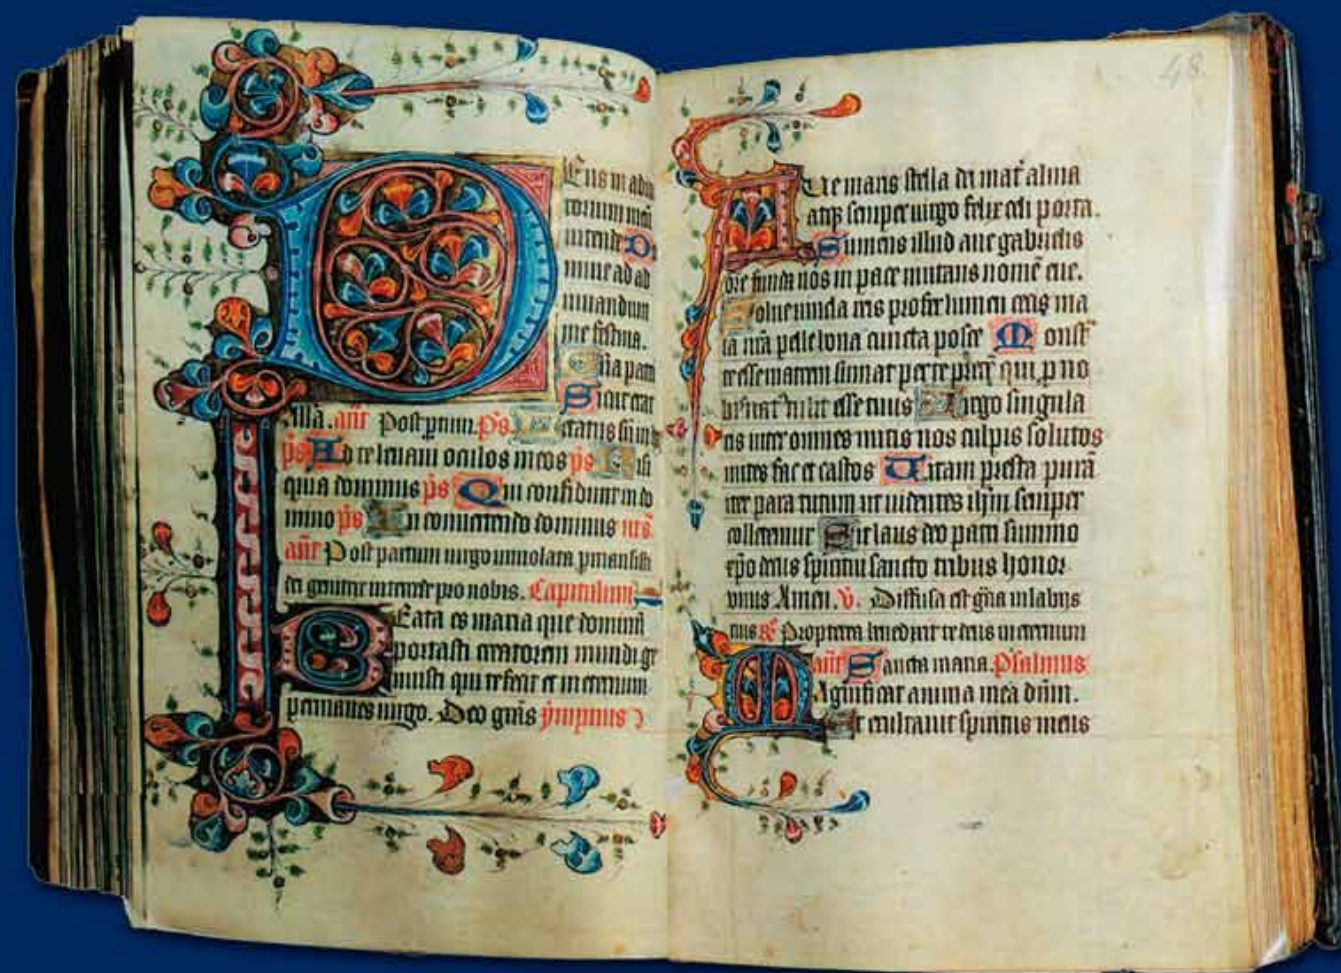 Deus in adiu
torium meū
intende Do
mine ad ad
iuuandum
me festina.
Gl̄ia patri
Sicut erat
Al̄la. an̄t Post partum. p̄s Letatus sum
p̄s Ad te leuaui oculos meos p̄s Nisi
quia dominus p̄s Qui confidunt in do
mino p̄s In conuertendo dominus
an̄t Post partum uirgo inuiolata p̄mansisti
dei genitrix intercede pro nobis. Capitulum
Beata es maria que dominū
portasti creatorem mundi ge
nuisti qui te fecit et in eternum
permanes uirgo. Deo gr̄as ympnus
48
Aue maris stella di mat̄ alma
atq̄ semper uirgo felix celi porta.
Sumens illud aue gabrielis
ore funda nos in pace mutans nomē eue.
Solue uincla reis profer lumen cecis ma
la nr̄a pelle bona cuncta posce Monst̄
te esse matrem sumat per te p̄cē qui p̄ no
bis nat᷒ tulit esse tuus Uirgo singula
ris inter omnes mitis nos culpis solutos
mites fac et castos Uitam presta purā
iter para tutum ut uidentes ih̄m semper
colletemur Sit laus deo patri summo
xp̄o decus spiritui sancto tribus honor
unus Amen. v̄. Diffusa est gr̄a in labijs
tuis R̄ Propterea benedixit te deus in eternum
an̄t Sancta maria. Psalmus
Magnificat anima mea dūm.
Et exultauit spiritus meus